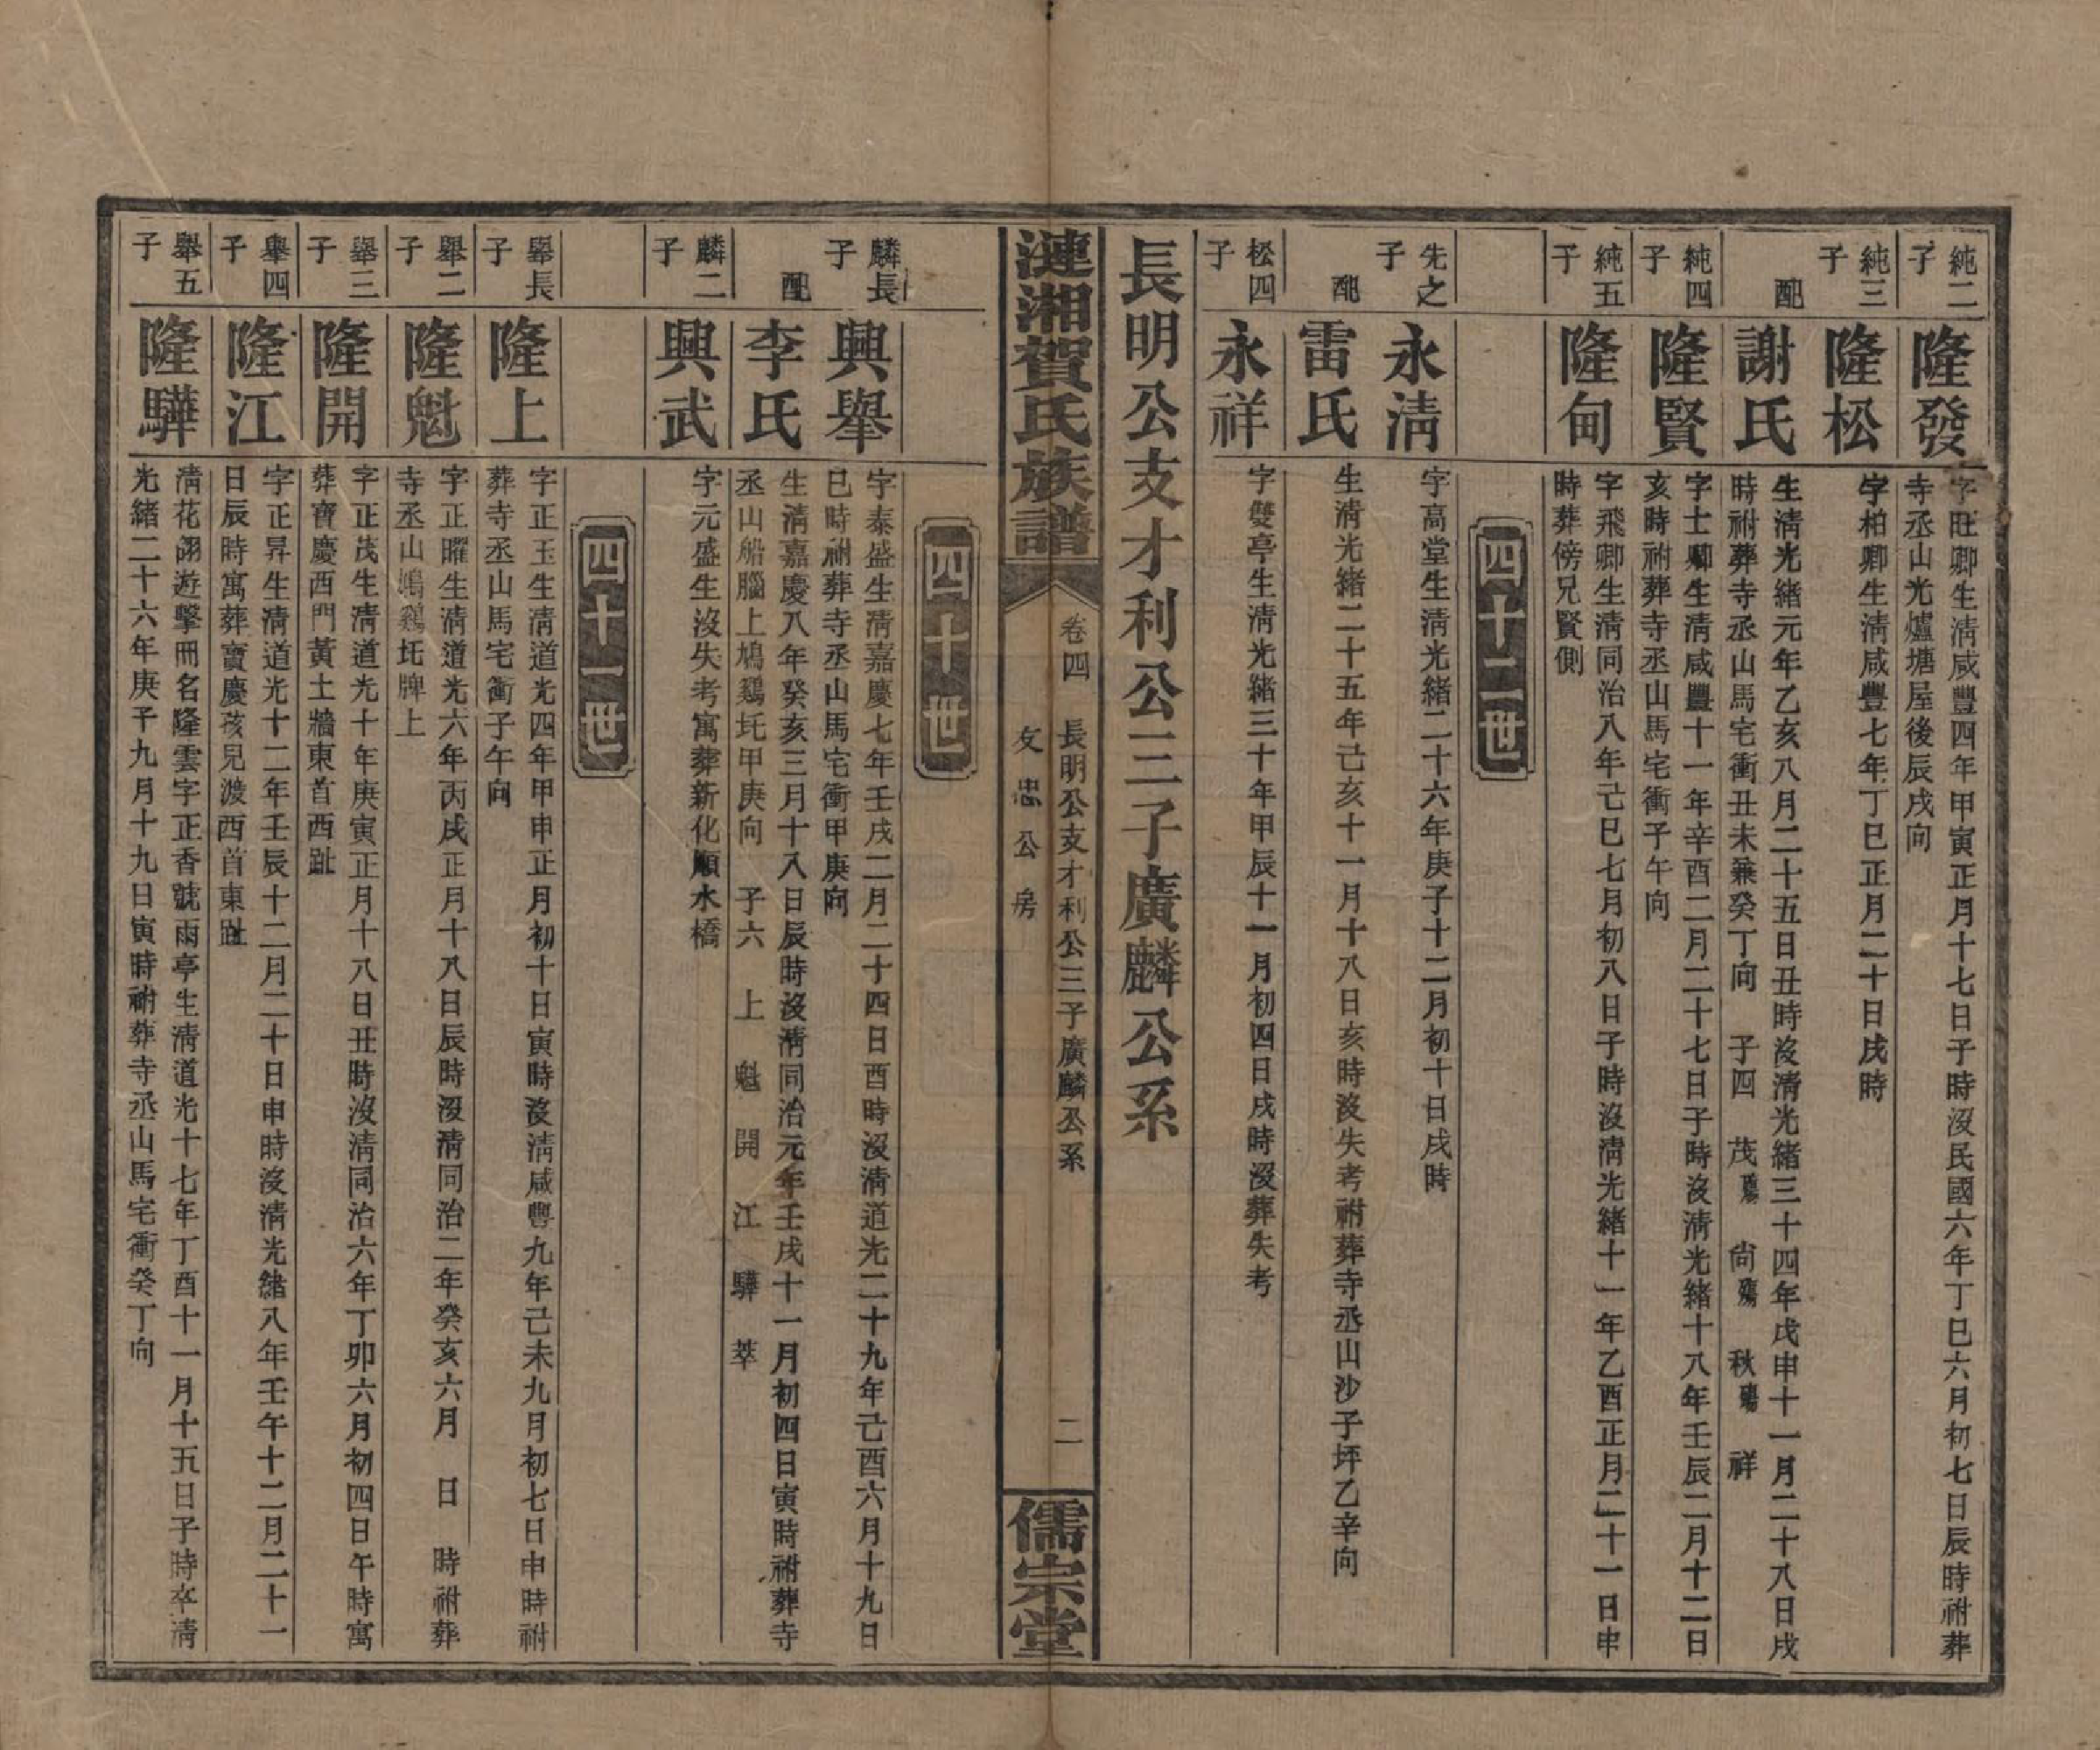 純二子
隆發
字旺卿生清咸豐四年甲寅正月十七日子時沒民國六年丁巳六月初七日辰時祔葬
寺丞山光爐塘屋後辰戌向
純三子
隆松
字柏卿生清咸豐七年丁巳正月二十日戌時
配
謝氏
生清光緒元年乙亥八月二十五日丑時沒清光緒三十四年戊申十一月二十八日戌
時祔葬寺丞山馬宅衝丑未兼癸丁向 子四 茂殤 尙殤 秋殤 祥
純四子
隆賢
字士卿生清咸豐十一年辛酉二月二十七日子時沒清光緒十八年壬辰二月十二日
亥時祔葬寺丞山馬宅衝子午向
純五子
隆甸
字飛卿生清同治八年己巳七月初八日子時沒清光緒十一年乙酉正月二十一日申
時葬傍兄賢側
四十二世
先之子
永清
字高堂生清光緒二十六年庚子十二月初十日戌時
配
雷氏
生清光緒二十五年己亥十一月十八日亥時沒失考祔葬寺丞山沙子坪乙辛向
松四子
永祥
字雙亭生清光緒三十年甲辰十一月初四日戌時沒葬失考
長明公支才利公三子廣麟公系
漣湘賀氏族譜
卷四 長明公支才利公三子廣麟公系
文忠公房
二
儒宗堂
四十世
麟長子
興舉
字泰盛生清嘉慶七年壬戌二月二十四日酉時沒清道光二十九年己酉六月十九日
巳時祔葬寺丞山馬宅衝甲庚向
配
李氏
生清嘉慶八年癸亥三月十八日辰時沒清同治元年壬戌十一月初四日寅時祔葬寺
丞山船腦上鳩鷄坵甲庚向 子六 上 魁 開 江 驊 萃
麟二子
興武
字元盛生沒失考寓葬新化順水橋
四十一世
舉長子
隆上
字正玉生清道光四年甲申正月初十日寅時沒清咸豐九年己未九月初七日申時祔
葬寺丞山馬宅衝子午向
舉二子
隆魁
字正曜生清道光六年丙戌正月十八日辰時沒清同治二年癸亥六月 日 時祔葬
寺丞山鳩鷄坵牌上
舉三子
隆開
字正茂生清道光十年庚寅正月十八日丑時沒清同治六年丁卯六月初四日午時寓
葬寶慶西門黃土牆東首西趾
舉四子
隆江
字正昇生清道光十二年壬辰十二月二十日申時沒清光緒八年壬午十二月二十一
日辰時寓葬寶慶孩兒渡西首東趾
舉五子
隆驊
清花翎遊擊冊名隆雲字正香號雨亭生清道光十七年丁酉十一月十五日子時卒清
光緒二十六年庚子九月十九日寅時祔葬寺丞山馬宅衝癸丁向